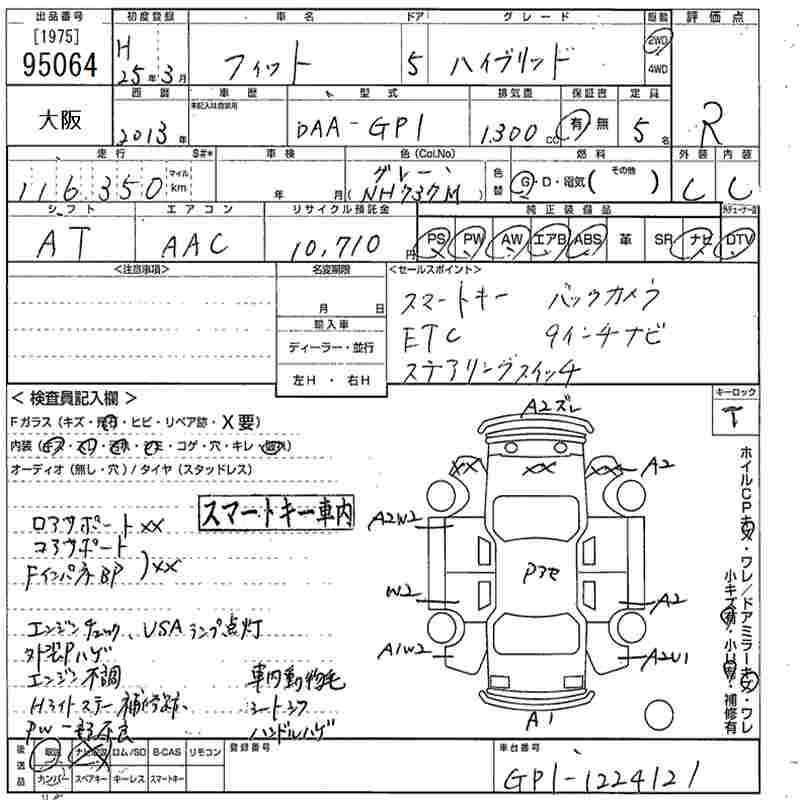 出品番号 初度登録 車名 ドア グレード 駆動 評価点
[1975]
95064
H 25年3月 フィット 5 ハイブリッド 2WD 4WD
西暦 車歴 型式 排気量 保証書 定員
未記入は自家用
大阪 2013年 DAA-GP1 1300cc 有 無 5名 R
走行 S#* 車検 色(Col.No) 色替 燃料 外装 内装
116,350 マイル km 年 月 グレー (NH737M) G・D・電気( その他 ) C C
シフト エアコン リサイクル預託金 純正装備品
AT AAC 10,710円 PS PW AW エアB ABS 革 SR ナビ DTV
<注意事項> 名変期限 <セールスポイント>
月 日
スマートキー バックカメラ
輸入車
ETC 9インチナビ
ディーラー・並行
ステアリングスイッチ
左H・右H
<検査員記入欄>
キーロック
T
Fガラス(キズ・飛石・ヒビ・リペア跡・X要)
内装(キズ・コゲ・穴・キレ
オーディオ(無し・穴)/タイヤ(スタッドレス)
スマートキー車内
ロアサポートXX
コアサポート
FインパネBP )XX
エンジンチェック、USAランプ点灯
エンジン不調 車内動物毛
Hライトステー補修跡 シートシワ
PW一部不良 ハンドルハゲ
A2ズレ
XX XX XX A2
A2W2
W2 A2
A1W2 A2U1
A1
ホイルCPキズ・ワレ/ドアミラーキズ・ワレ
小キズ有・小凹有・補修有
後送品 取説 ナビ取説 ロム/SD B-CAS リモコン 登録番号 車台番号
ナンバー スペアキー キーレス スマートキー
GP1-1224121